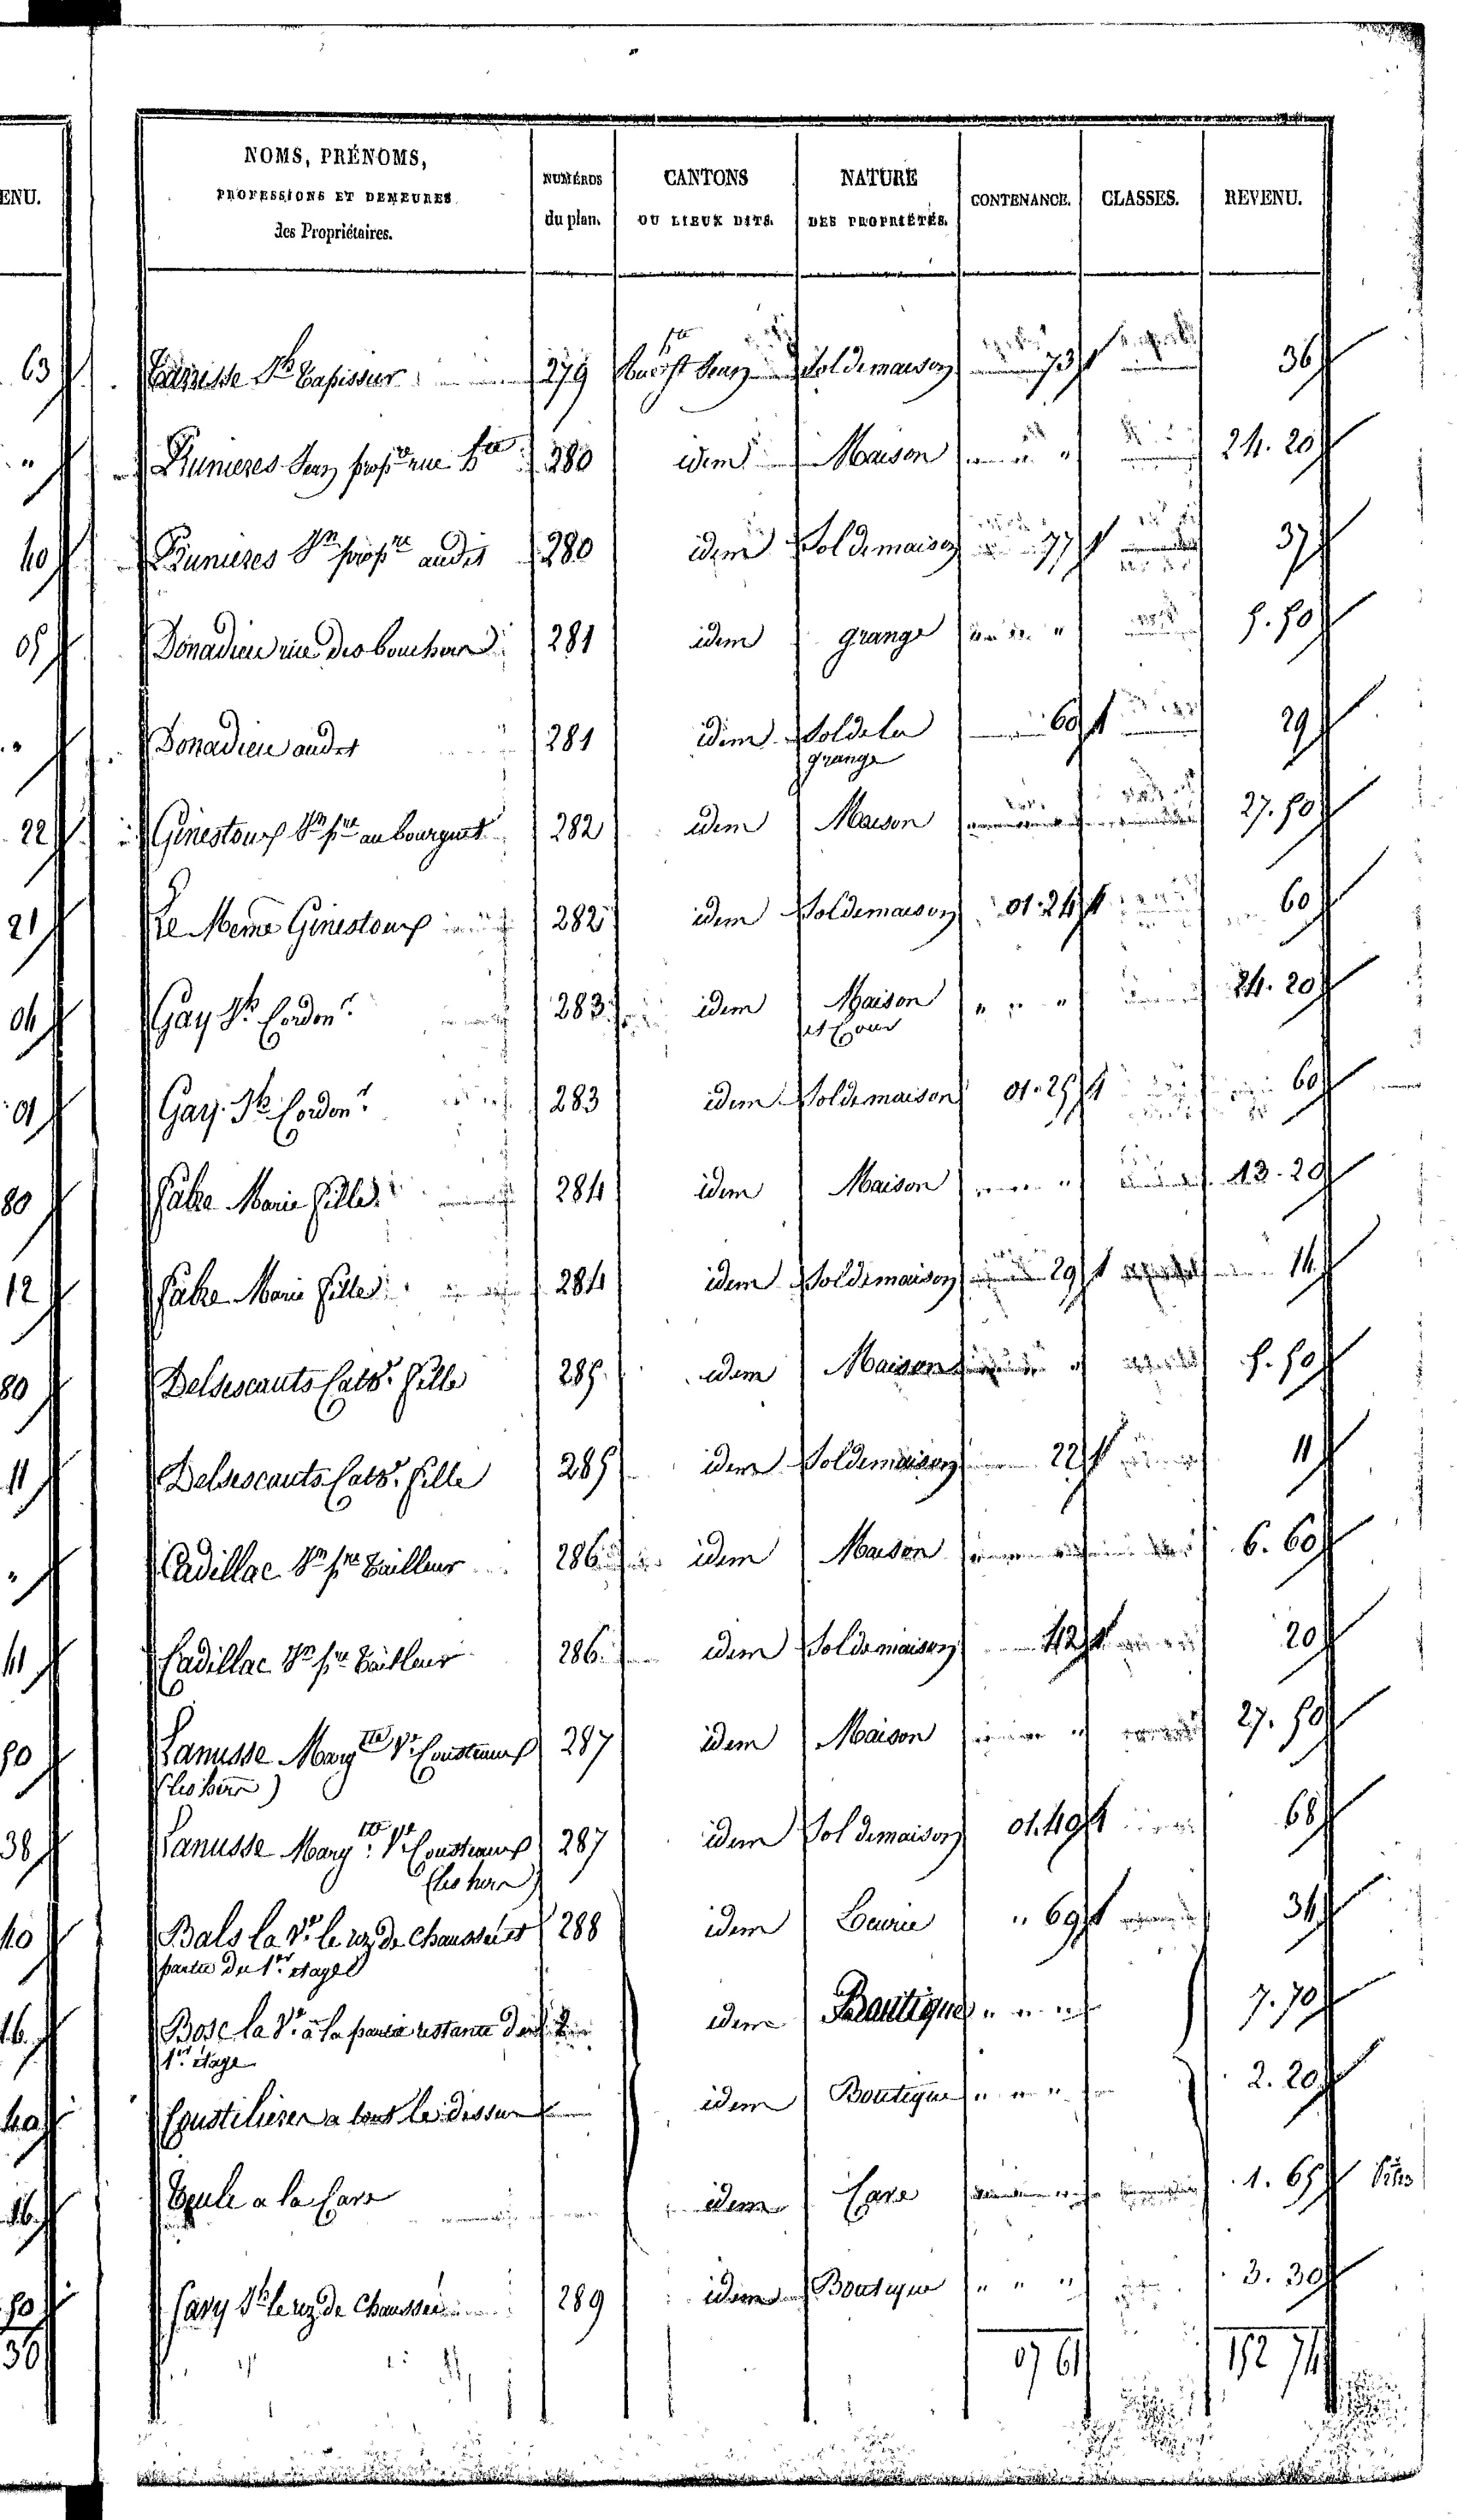 ENU.
NOMS, PRÉNOMS,
PROFESSIONS ET DEMEURES
des Propriétaires.
NUMÉROS
du plan.
CANTONS
OU LIEUX DITS.
NATURE
DES PROPRIÉTÉS.
CONTENANCE.
CLASSES.
REVENU.
63 Jh Tapissier 279 Sol de maison 73 1 36
" Prunieres Jean prop.re rue 280 idem Maison " " 24. 20
40 Prunieres Jn prop.re audit 280 idem Sol de maison 77 1 37
05 Donadieu rue des bouchers 281 idem grange " " 5. 50
" Donadieu audit 281 idem Sol de la 60 1 29
grange
22 Ginestoux Jn pre au bourguet 282 idem Maison 27. 50
21 Le Meme Ginestoux 282 idem Sol de maison 01. 24 1 60
04 Gay Jh Cordon.r 283 idem Maison " " " 24. 20
et Cour
01 Gay Jh Cordon.r 283 idem Sol de maison 01. 25 1 60
80 Fabre Marie fille 284 idem Maison " 13. 20
12 Fabre Marie fille 284 idem Sol de maison 29 1 14
80 Delsescauts Cath.e fille 285 idem Maison " 5. 50
11 Delsescauts Cath.e fille 285 idem Sol de maison 22 1 11
" Cadillac Jn pre Tailleur 286 idem Maison 6. 60
41 Cadillac Jn pre Tailleur 286 idem Sol de maison 42 1 20
50 Lanusse Marg.te V.e 287 idem Maison " 27. 50
(les hers)
38 Lanusse Marg.te V.e 287 idem Sol de maison 01. 40 1 68
(les hers)
40 Bals la V.e le rez de chaussée et 288 idem Ecurie " 69 1 34
partie du 1er etage
16 Bosc la V.e a la partie restante du idem Boutique " " " 7. 70
1er étage
40 a tout le dessus idem Boutique " " " 2. 20
16 a la Cave idem Cave 1. 65
50 Savy Jh le rez de Chaussée 289 idem Boutique " " " 3. 30
36 07 61 152 74